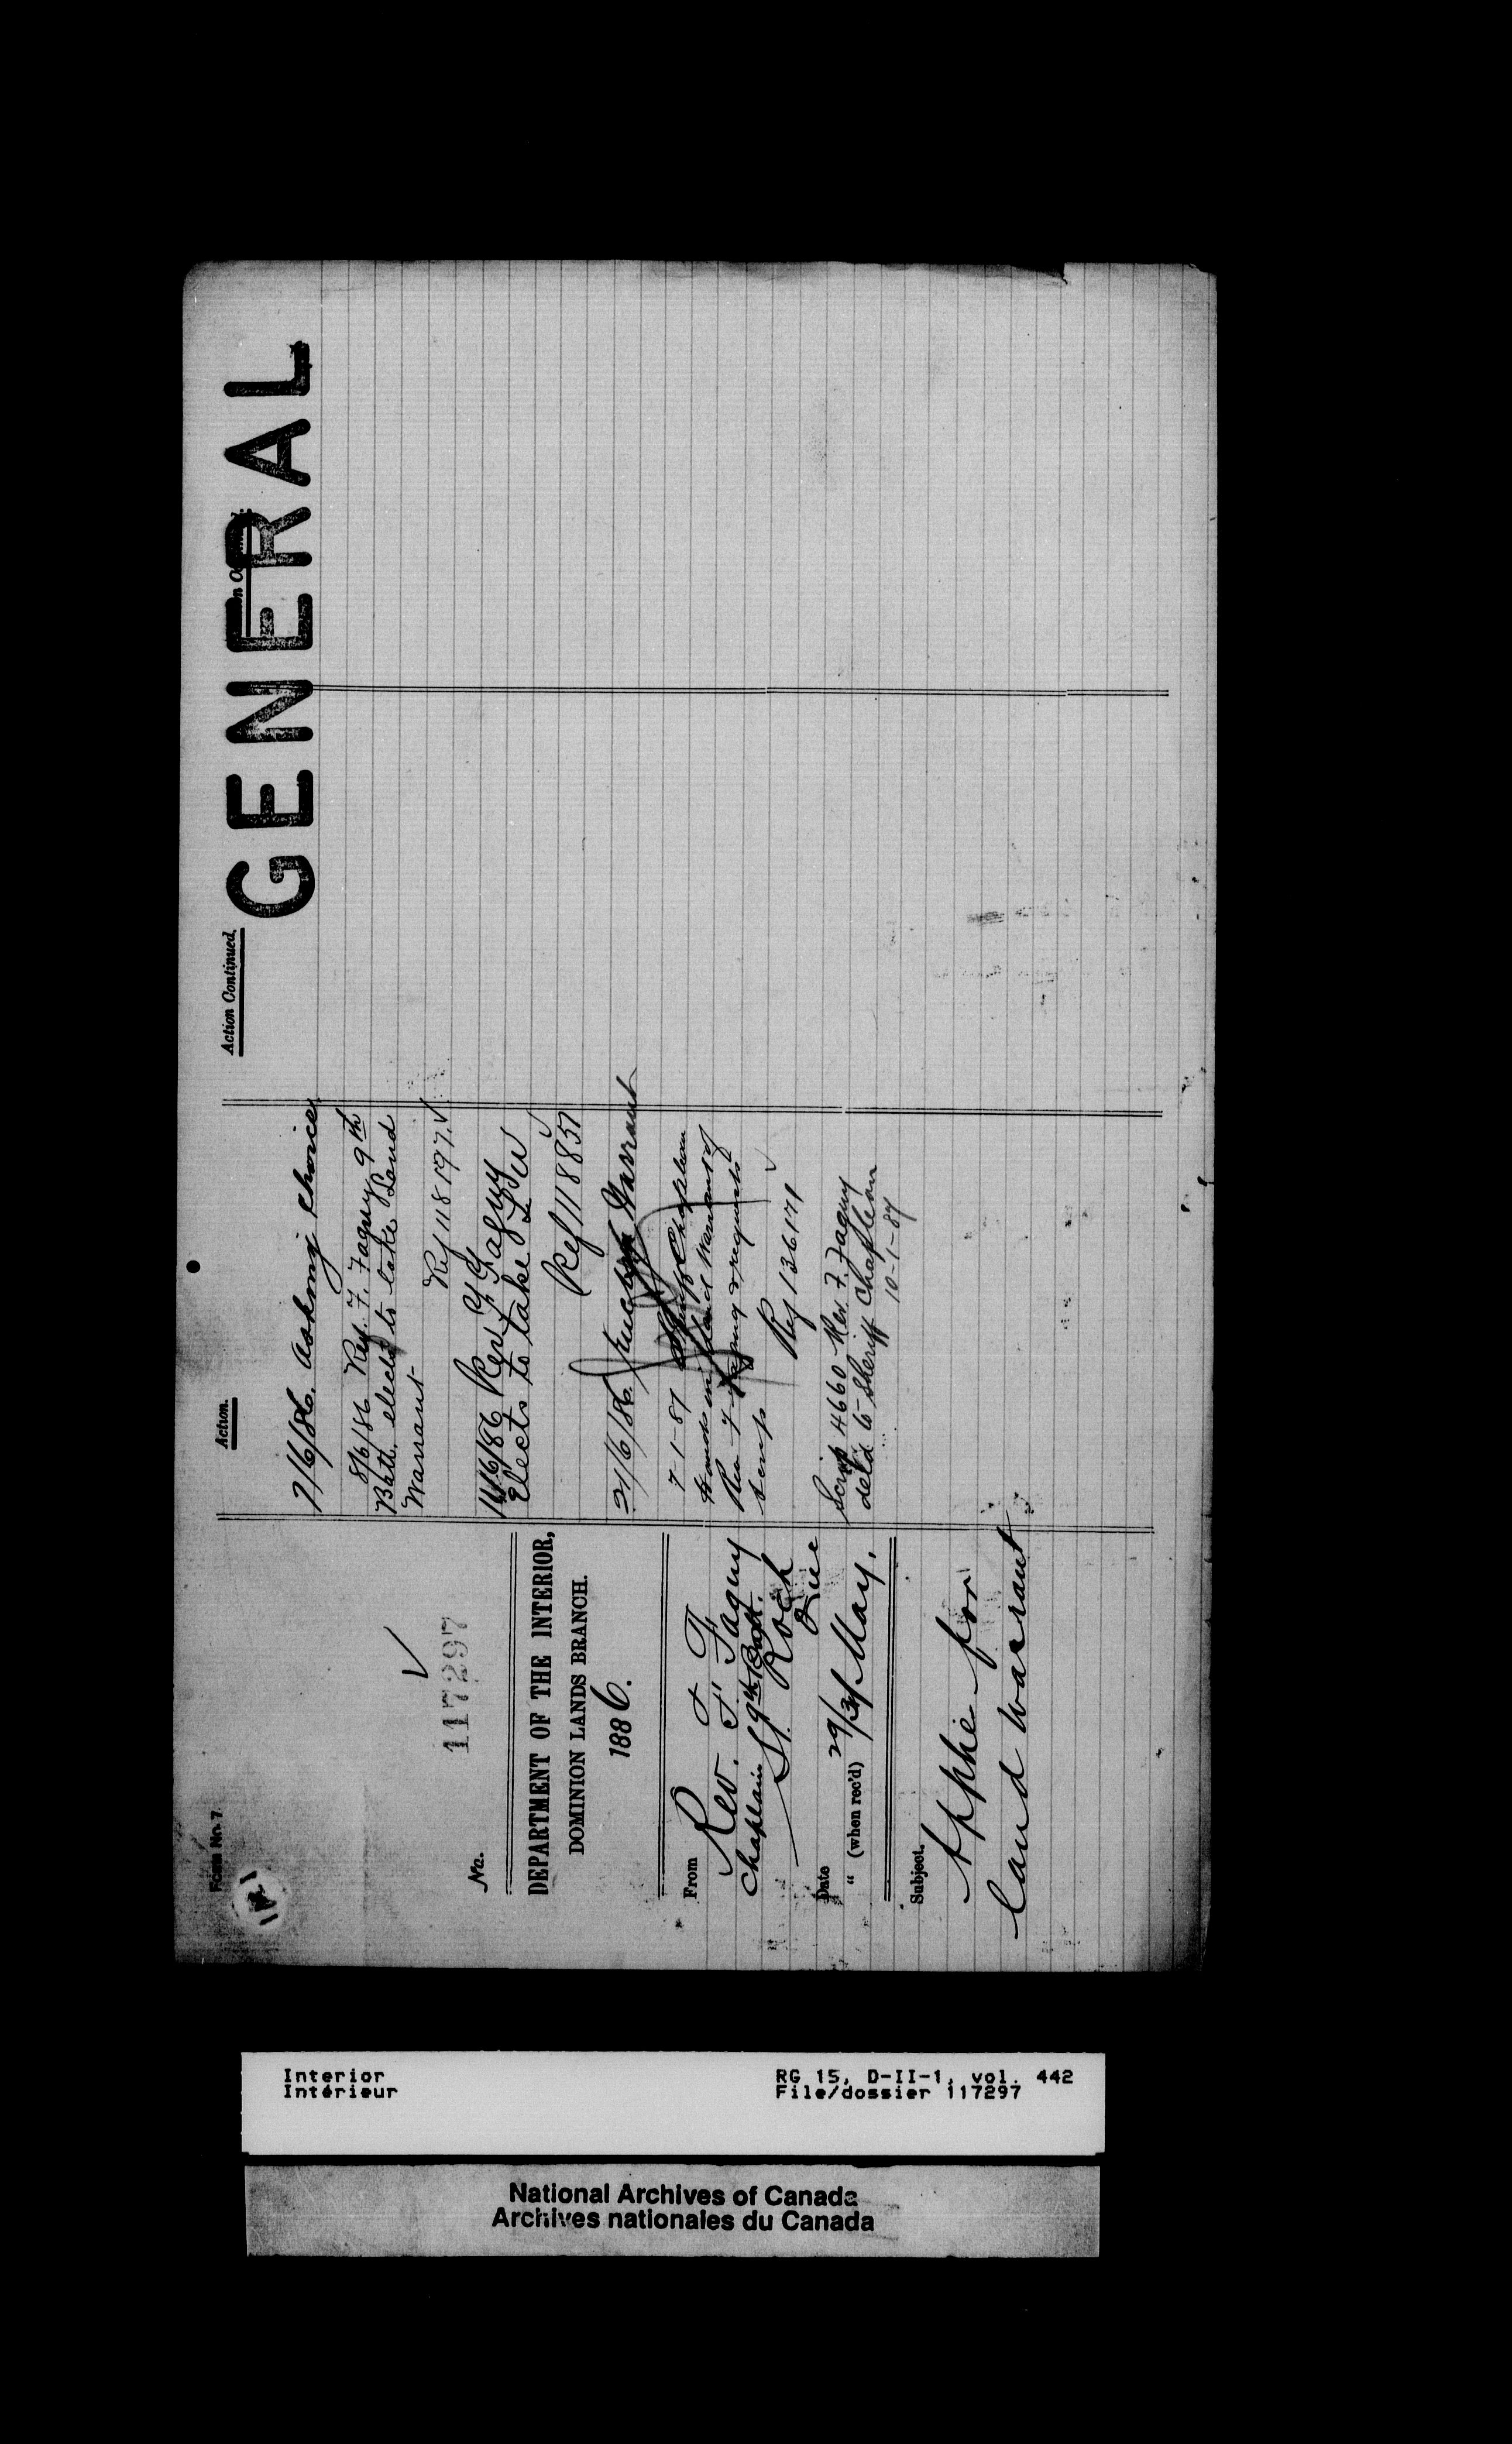 Form No. 7
No. 117297
DEPARTMENT OF THE INTERIOR,
DOMINION LANDS BRANCH.
1886.
From
Rev. F. Faguy
Chaplain 9th Batt.
St. Roch
Que
Date 29/31 May.
" (when rec'd)
Subject.
Applie for
land warrant
Action.
7/6/86. Asking choice
8/6/86 Rev. F. Faguy 9th
Batt. elects to take Land
Warrant
Ref 118197.
14/6/86 Rev F Faguy
Elects to take L W
Ref 118857
21/6/86. Warrant
7-1-87 Chapleau
Land Warrant of
Rev F Faguy & requests
scrip
Ref 136171
Scrip 4660 Rev. F. Faguy
deld to Sheriff Chapleau
10-1-87
Action Continued.
GENERAL
Interior
Intérieur
RG 15, D-II-1, vol. 442
File/dossier 117297
National Archives of Canada
Archives nationales du Canada